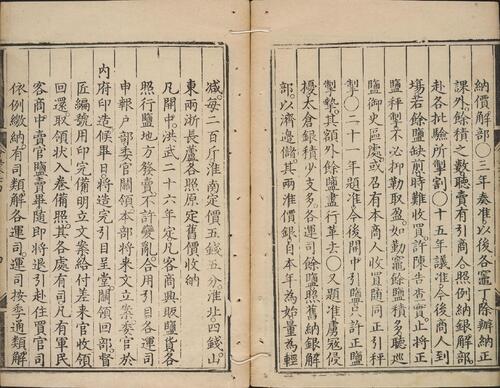 納價解部○三年奏准以後各竈丁除辦納正
課外餘積之數聽賣有引商人照例納銀解部
赴各批驗所掣割○十五年議准今後商人到
場若餘鹽缺煎時難收買許陳告查實止將正
鹽秤掣不必抑勒取盈如勤竈餘鹽積多聽巡
鹽御史區處或召有本商人收買隨同正引秤
掣○二十一年題准今後開中引鹽只許正鹽
掣摯其額外餘鹽盡行革去○又題准虜寇侵
擾太倉銀積少支多各運司餘鹽照舊納銀解
部以濟邊儲其兩淮價銀自本年為始量為輕
減每二百斤淮南定價五錢五分淮北四錢山
東兩浙長蘆各照原定舊價收納
凡開中洪武二十六年定凡客商興販鹽貨各
照行鹽地方發賣不許變亂合用引目各運司
申報戶部委官關領本部將來文立案委官於
內府印造候畢日將造完引目呈堂關領回部督
匠編號用印完備明立文案給付差來官收領
回還取領狀入卷備照其各處有司凡有軍民
客商中賣官鹽賣畢隨即將退引赴住買官司
依例繳納有司類解各運司運司按季通類解